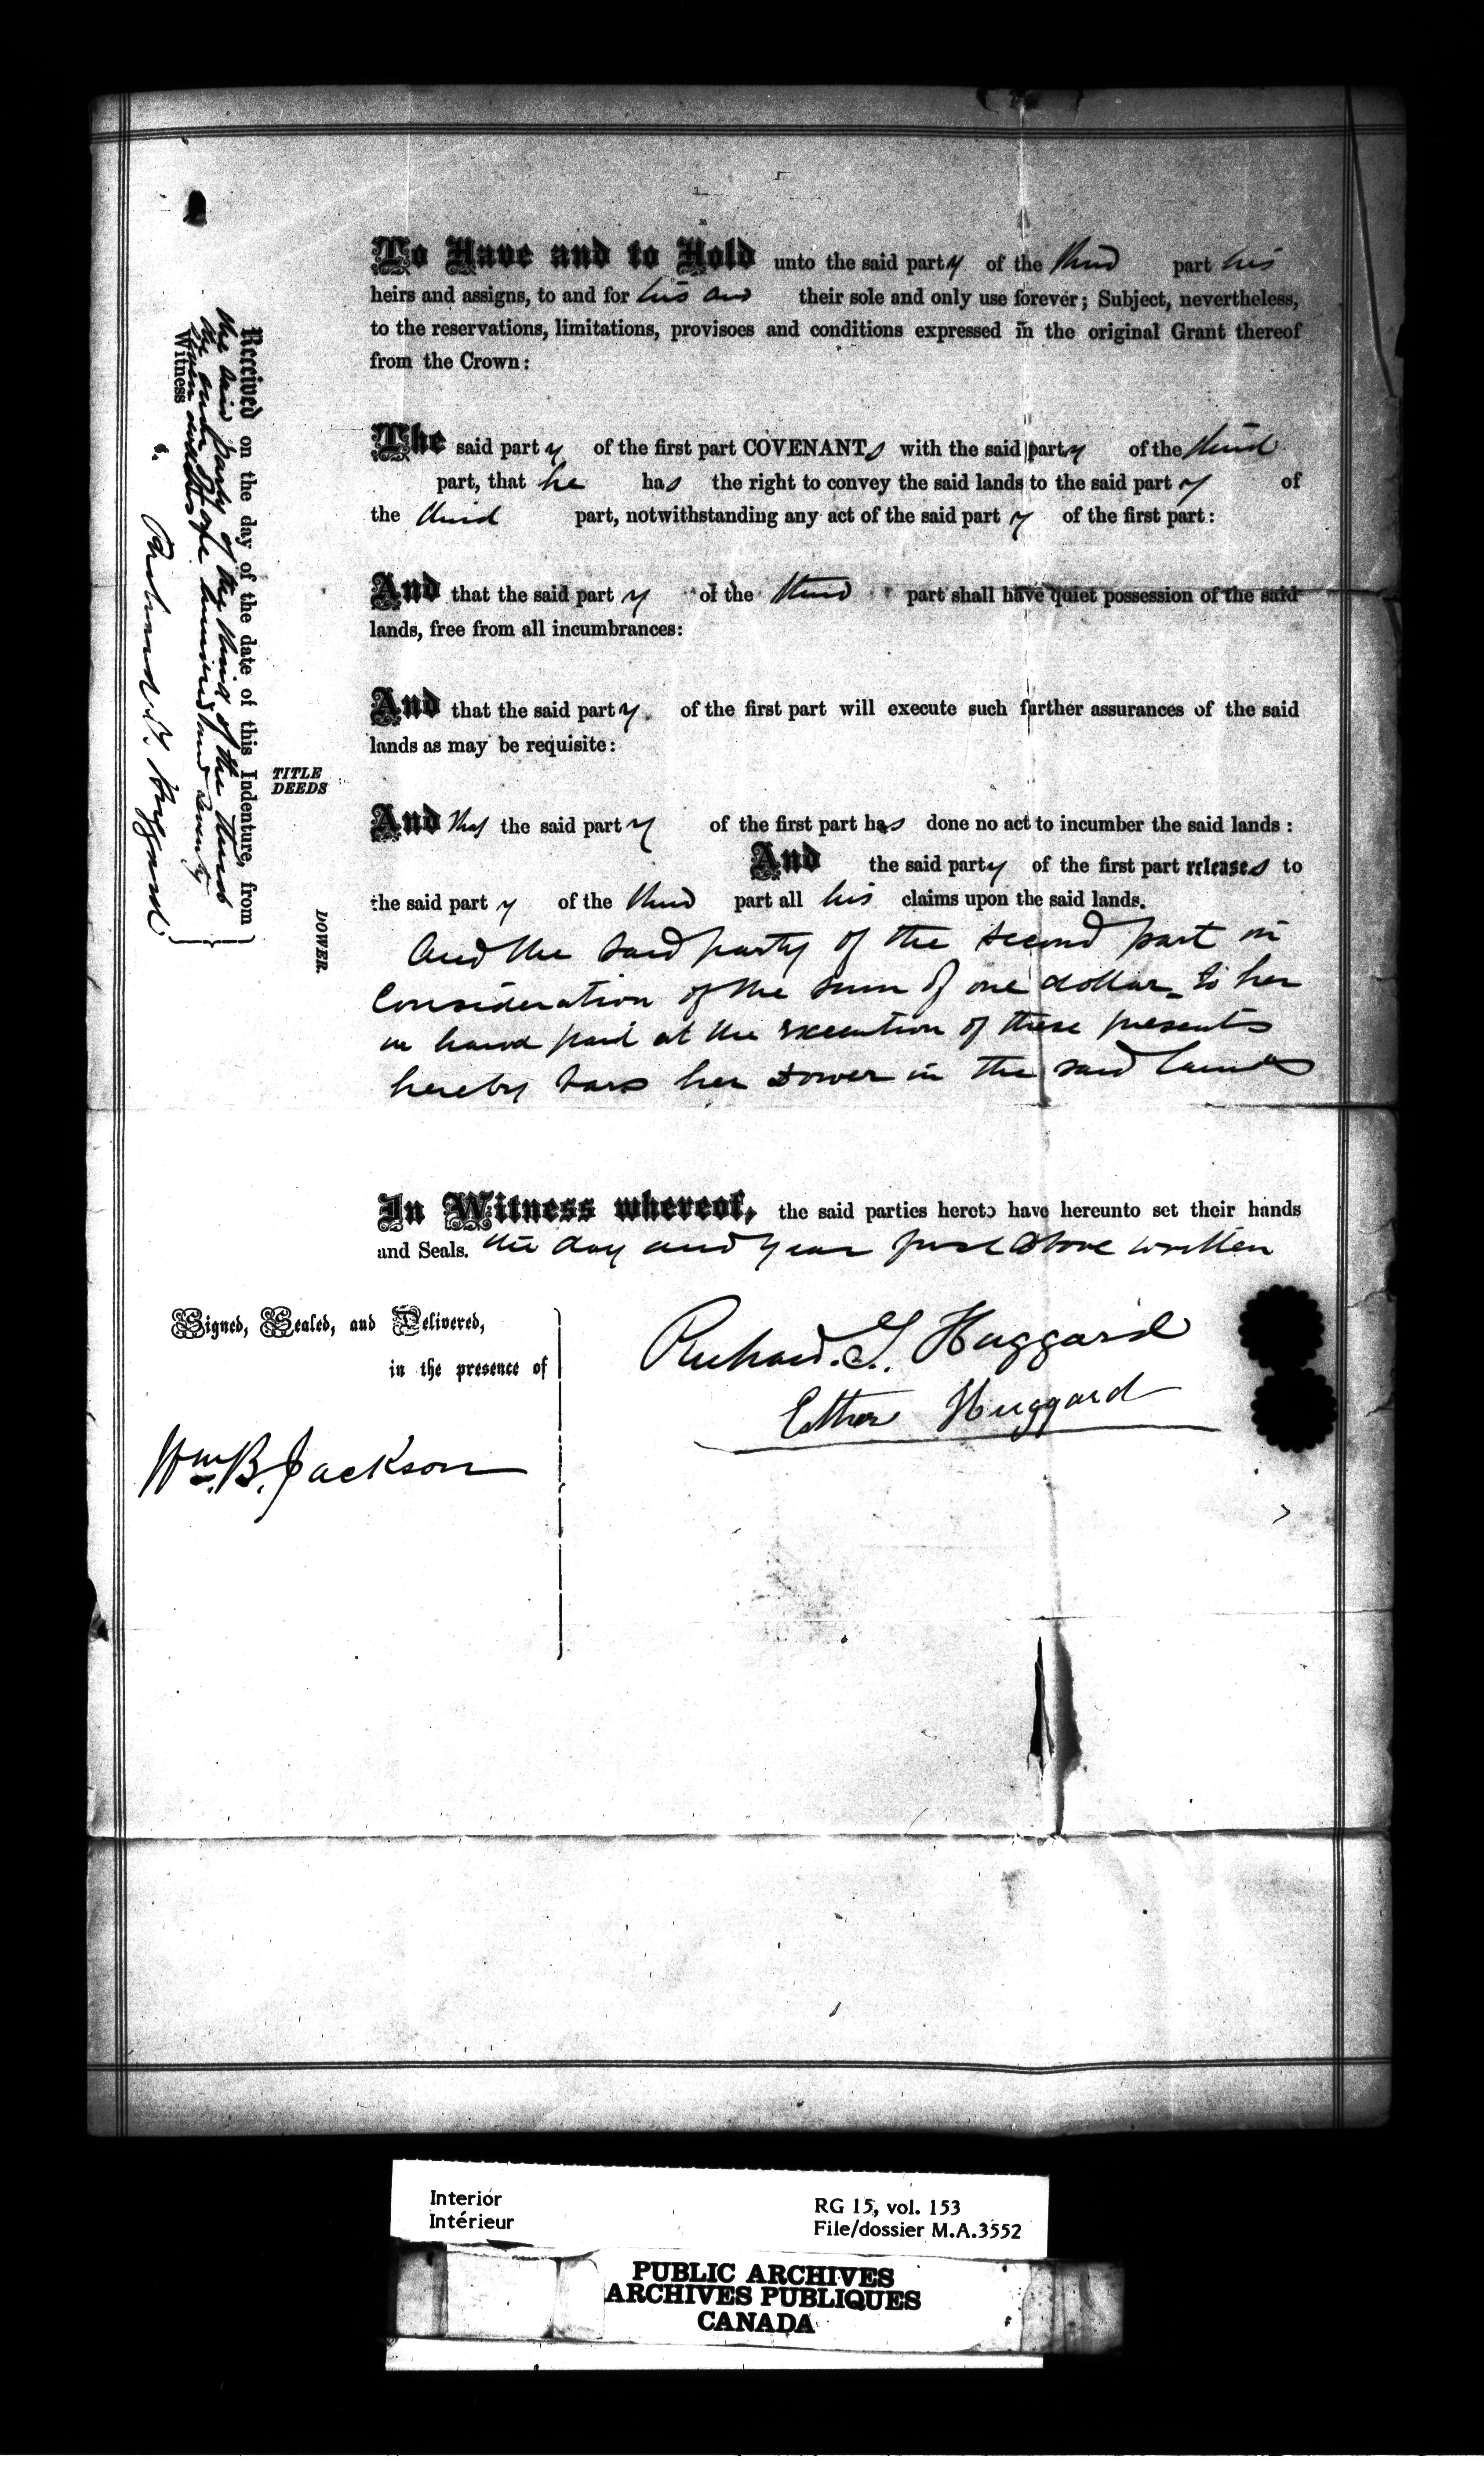 To Have and to Hold unto the said party of the third part his
heirs and assigns, to and for his and their sole and only use forever; Subject, nevertheless,
to the reservations, limitations, provisoes and conditions expressed in the original Grant thereof
from the Crown:
The said party of the first part COVENANTs with the said party of the third
part, that he has the right to convey the said lands to the said party of
the third part, notwithstanding any act of the said party of the first part:
And that the said party of the third part shall have quiet possession of the said
lands, free from all incumbrances:
And that the said party of the first part will execute such further assurances of the said
lands as may be requisite:
TITLE
DEEDS
And that the said party of the first part has done no act to incumber the said lands:
And the said party of the first part releases to
the said party of the third part all his claims upon the said lands.
DOWER.
And the said party of the second part in
Consideration of the sum of one dollar to her
in hand paid at the execution of these presents
hereby bars her Dower in the said lands
In Witness whereof, the said parties hereto have hereunto set their hands
and Seals. the day and year first above written
Signed, Sealed, and Delivered,
in the presence of
Wm. B. Jackson
Richard. G. Huggard
Esther Huggard
Received on the day of the date of this Indenture, from
the said party of the third of the third
the sum of one hundred and seventy
seven dollars
Witness
Richard G. Huggard
Interior
Intérieur
RG 15, vol. 153
File/dossier M.A.3552
PUBLIC ARCHIVES
ARCHIVES PUBLIQUES
CANADA